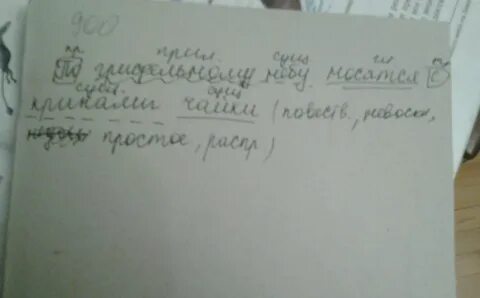 900
пр прил. сущ гл пр
По грифельному небу носятся с
сущ. сущ
криками чайки (повеств., невоскл,
простое, распр)